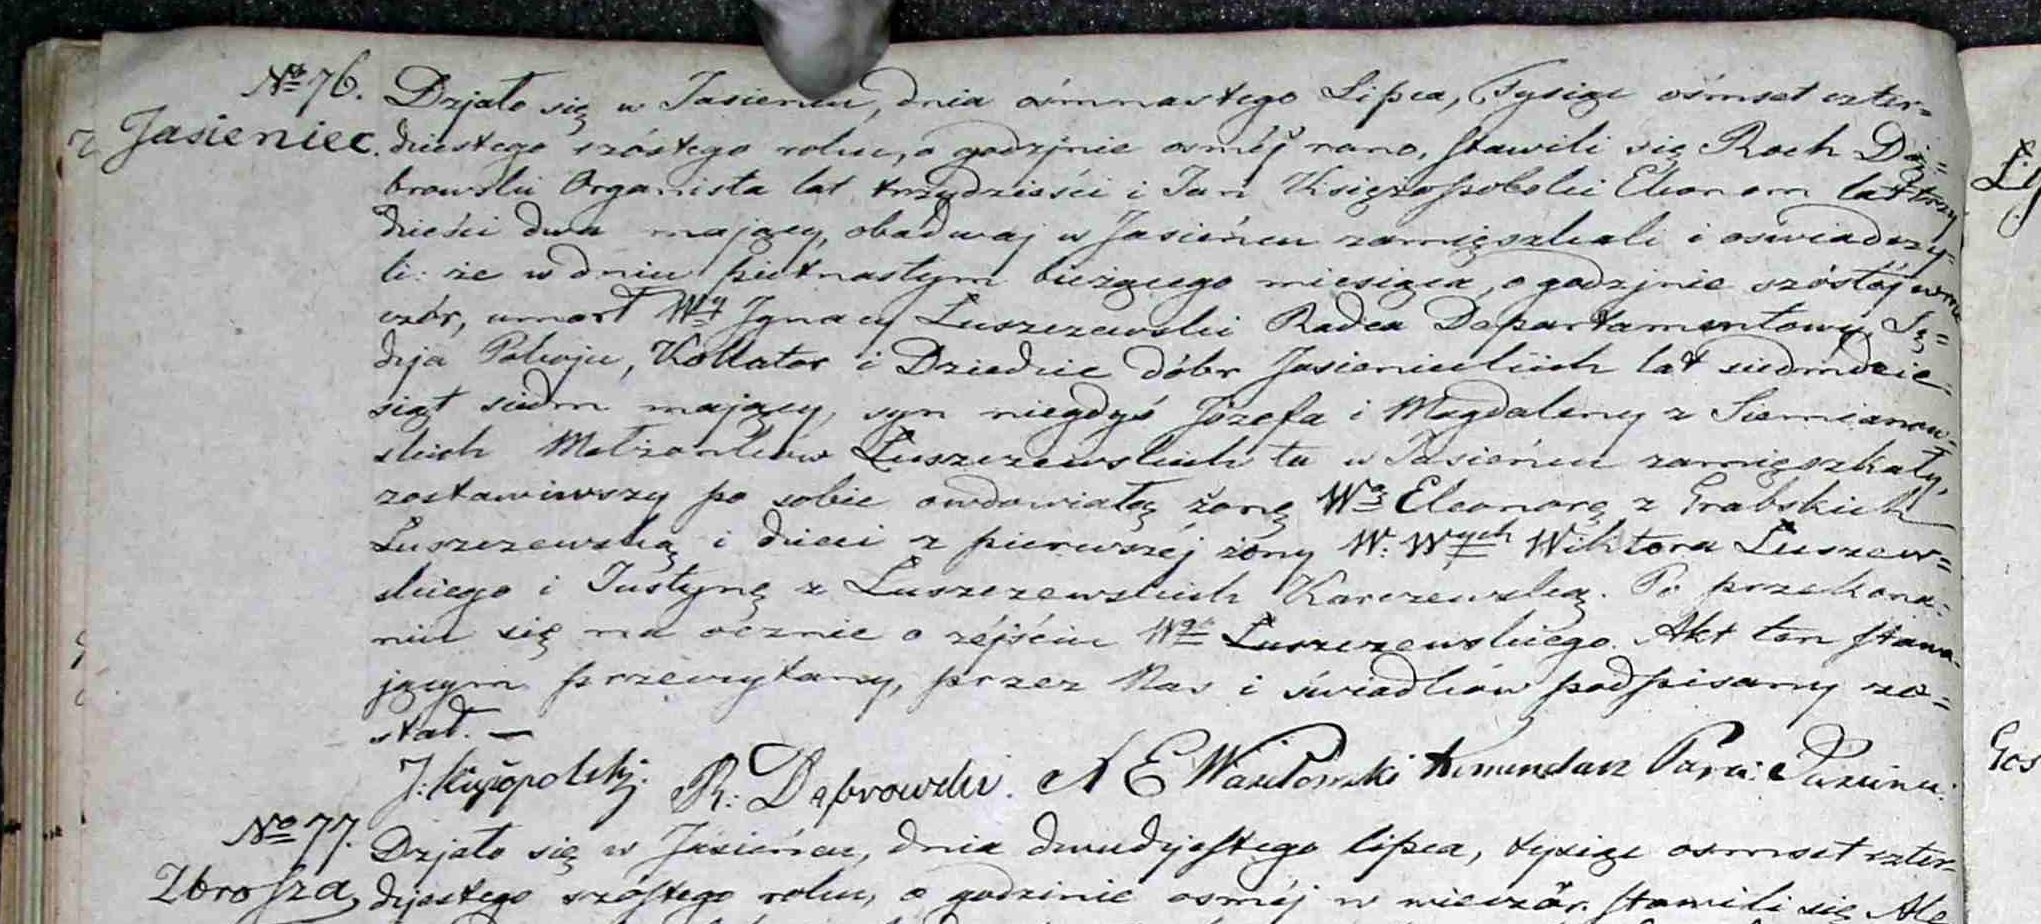 № 76.
Jasieniec.
Dzjało się w Jasieńcu, dnia ósmnastego Lipca, Tysiąc ośmset czter-
dziestego szóstego roku, o godzjnie osméj rano, stawili się Roch Dą=
browski Organista lat trzydzieści i Jan Księżopolski Ekonom lat trzy
dzieści dwa mający, obadwaj w Jasieńcu zamięszkali i oswiadczy-
li: że w dniu piętnastym bieżącego miesiąca, o godzjnie szóstéj wie
czór, umarł Wy Jgnacy Łuszczewski Radca Departamentowy, Sę=
dzia Pokoju, Kollator i Dziedzic dóbr Jasienieckich lat siedmdzie-
siąt siedm mający, syn niegdyś Józefa i Magdaleny z Siemianow-
skich Małżonków Łuszczewskich tu w Jasieńcu zamięszkały,
zostawiwszy po sobie owdowiałą żonę Wą Eleonorę z Grabskich
Łuszczewską i dzieci z pierwszéj żony W: Wych Wiktora Łuszew=
skiego i Justynę z Łuszczewskich Karczewską. Po przekona-
niu się na ócznie o zéjściu Wgo Łuszczewskiego. Akt ten stawa-
jącym przeczytany, przez Nas i świadków podpisany zo=
stał. —
J: Księżopolski. R: Dąbrowski. X E Wasiłowski Komendarz Para:
№ 77.
Zbrosza,
Dzjało się w Jasieńcu, dnia dwudzjestego lipca, tysiąc osmset czter-
dzjestego szóstego roku, o godzinie osméj w wieczór stawili się